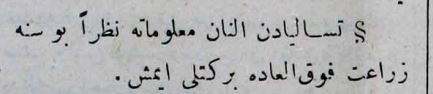 § تساليادن النان معلوماته نظراً بو سنه
زراعت فوق‌العاده بركتلى ايمش.